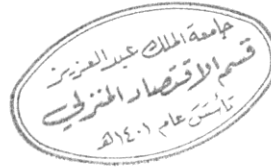 جامعة الملك عبد العزيز
قسم الاقتصاد المنزلي
تأسس عام ١٤٠١هـ